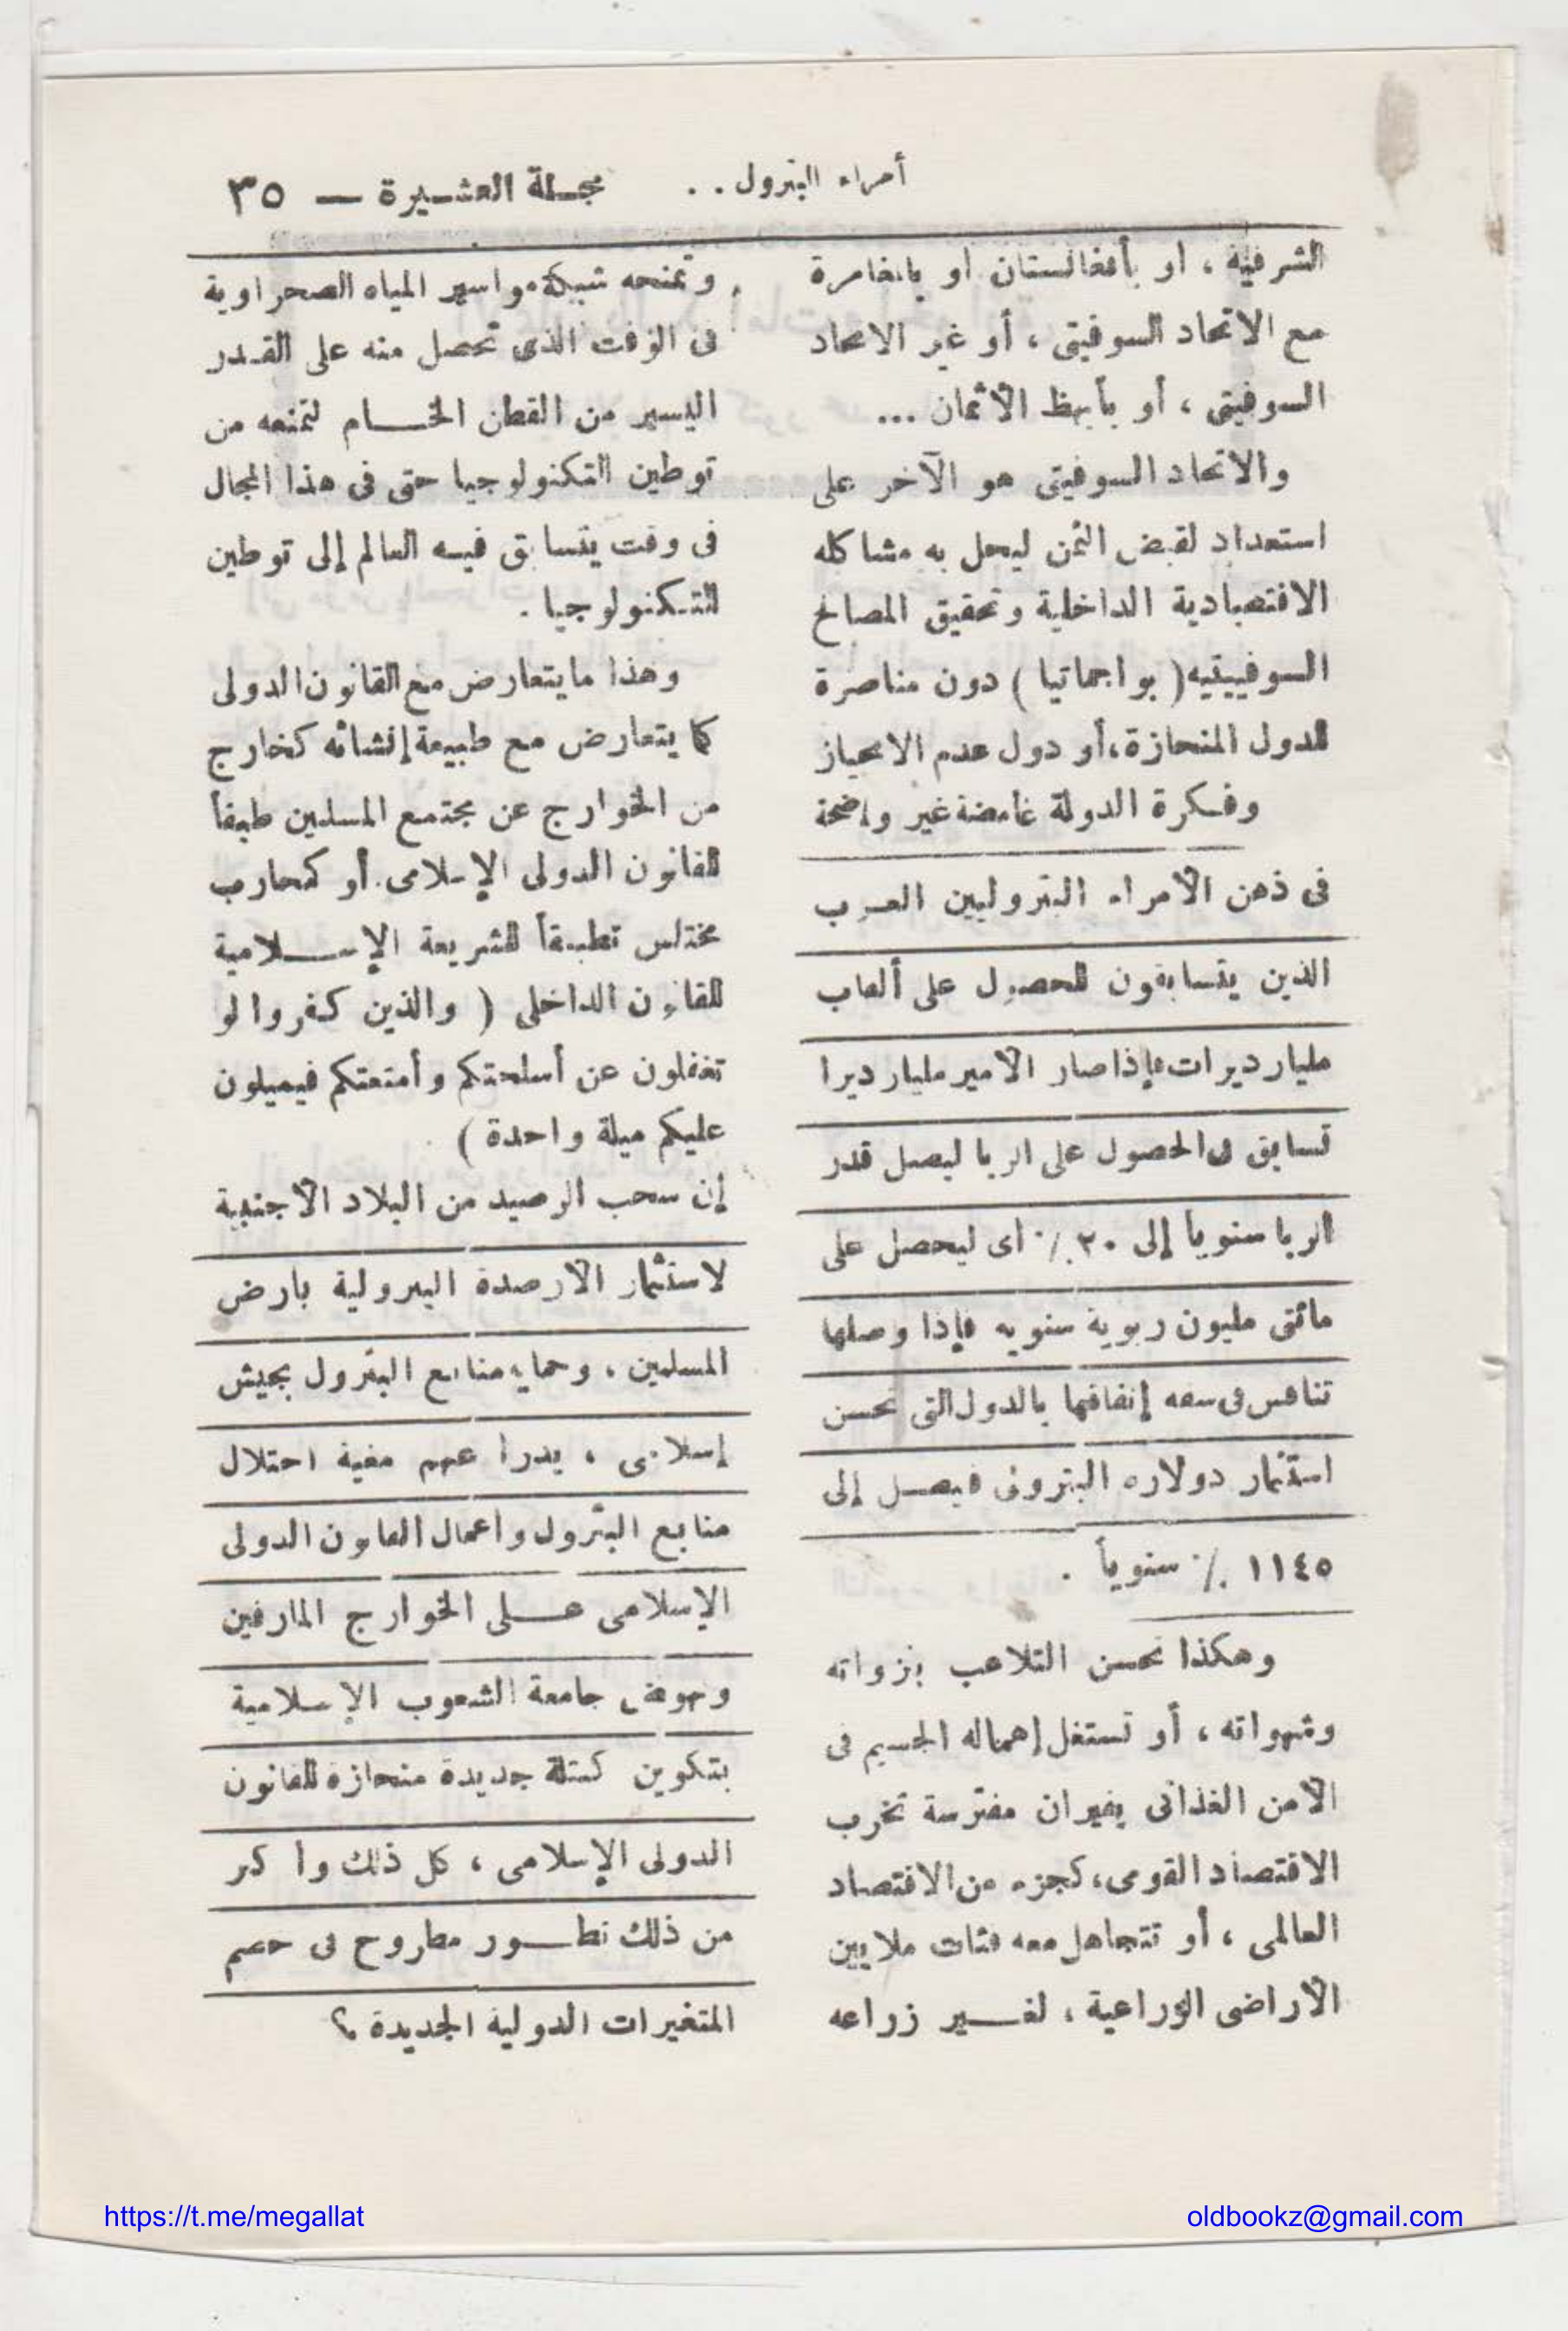 أمراء البترول . .
مجلة العشيرة — ٣٥
الشرقية ، أو بأفغانستان أو بالمغامرة
مع الاتحاد السوفيتى ، أو غير الاتحاد
السوفيتى ، أو بأبهظ الأثمان ...
والاتحاد السوفيتى هو الآخر على
استعداد لقبض الثمن ليحل به مشاكله
الاقتصادية الداخلية وتحقيق المصالح
السوفييتيه ( بواجماتيا ) دون مناصرة
للدول المنحازة ، أو دول عدم الانحياز
وفكرة الدولة غامضة غير واضحة
فى ذهن الأمراء البتروليين العرب
الذين يتسابقون للحصول على ألعاب
مليارديرات فإذا صار الأمير مليارديرا
تسابق فى الحصول على الربا ليصل قدر
الربا سنوياً إلى ٢٠ ٪ أى ليحصل على
مائتى مليون ربوية سنويه فإذا وصلها
تنافس فى سعه إنفاقها بالدول التى تحسن
استثمار دولاره البترونى فيصل إلى
١١٤٥ ٪ سنوياً .
وهكذا تحسن التلاعب بنزواته
وشهواته ، أو تستغل إهماله الجسيم فى
الأمن الغذائى بفيران مفترسة تخرب
الاقتصاد القومى ، كجزء من الاقتصاد
العالمى ، أو تتجاهل معه فئات ملايين
الأراضى الزراعية ، لغير زراعه
وتمنحه شبكة مواسير المياه الصحراوية
فى الوقت الذى تحصل منه على القدر
اليسير من القطن الخام لتمنعه من
توطين التكنولوجيا حتى فى هذا المجال
فى وقت يتسابق فيه العالم إلى توطين
التكنولوجيا .
وهذا ما يتعارض مع القانون الدولى
كما يتعارض مع طبيعة إنشائه كخارج
من الخوارج عن مجتمع المسلمين طبقاً
للقانون الدولى الإسلامى أو كمحارب
مختلس تطبيقاً للشريعة الإسلامية
للقانون الداخلى ( والذين كفروا لو
تغفلون عن أسلحتكم وأمتعتكم فيميلون
عليكم ميلة واحدة )
إن سحب الرصيد من البلاد الأجنبية
لاستثمار الأرصدة البترولية بأرض
المسلمين ، وحماية منابع البترول بجيش
إسلامى ، يدرأ عنهم مغبة احتلال
منابع البترول وأعمال القانون الدولى
الإسلامى على الخوارج المارقين
ونهوض جامعة الشعوب الإسلامية
بتكوين كتلة جديدة منحازة للقانون
الدولى الإسلامى ، كل ذلك وأكثر
من ذلك تطور مطروح فى خضم
المتغيرات الدولية الجديدة ؟
https://t.me/megallat
oldbookz@gmail.com